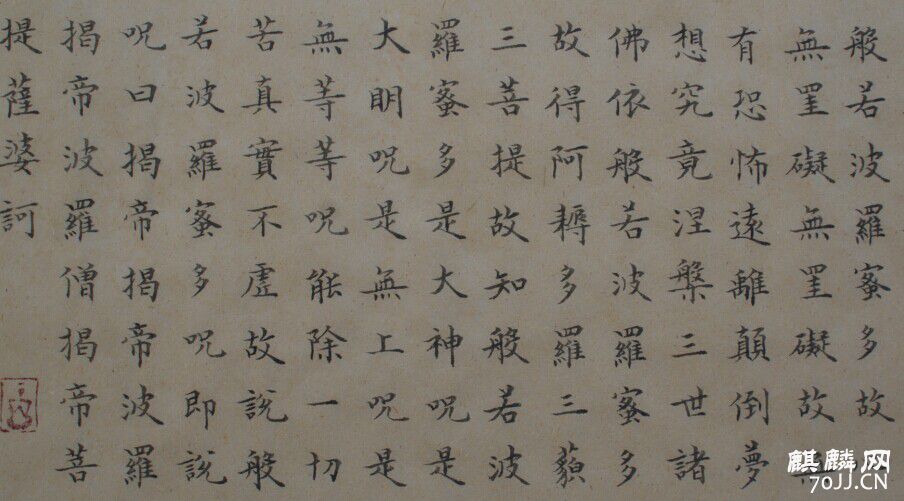 般若波羅蜜多故
無罣礙無罣礙故
有恐怖遠離顛倒夢
想究竟涅槃三世諸
佛依般若波羅蜜多
故得阿耨多羅三藐
三菩提故知般若波
羅蜜多是大神呪是
大明呪是無上呪是
無等等呪能除一切
苦真實不虛故說般
若波羅蜜多呪即說
呪曰揭帝揭帝波羅
揭帝波羅僧揭帝菩
提薩婆訶
麒麟网
70JJ.CN